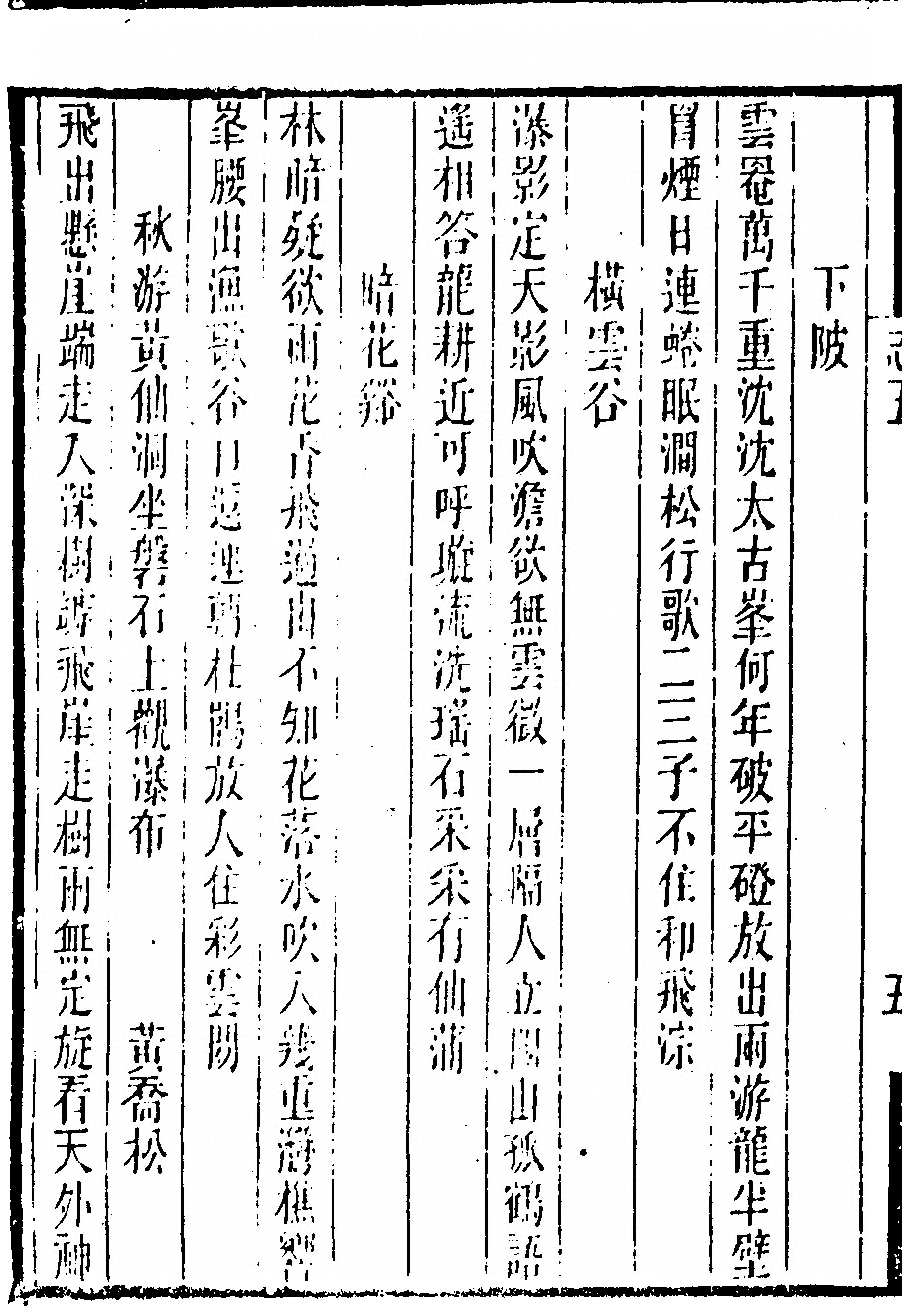 志五
五
下陂
雲罨萬千重沈沈太古峯何年破平磴放出兩游龍半壁
罥煙日連蜷眠澗松行歌二三子不住和飛淙
橫雲谷
瀑影定天影風吹澹欲無雲微一層隔人立四山孤鶴語
遙相答龍耕近可呼璇流洗瑤石采采有仙蒲
暗花谿
林暗疑欲雨花香飛過山不知花落水吹入幾重灣樵響
峯腰出漁歌谷口還連朝杜鵑放人住彩雲間
秋游黃仙洞坐磐石上觀瀑布　黃喬松
飛出懸崖端走入深樹罅飛崖走樹雨無定旋看天外神